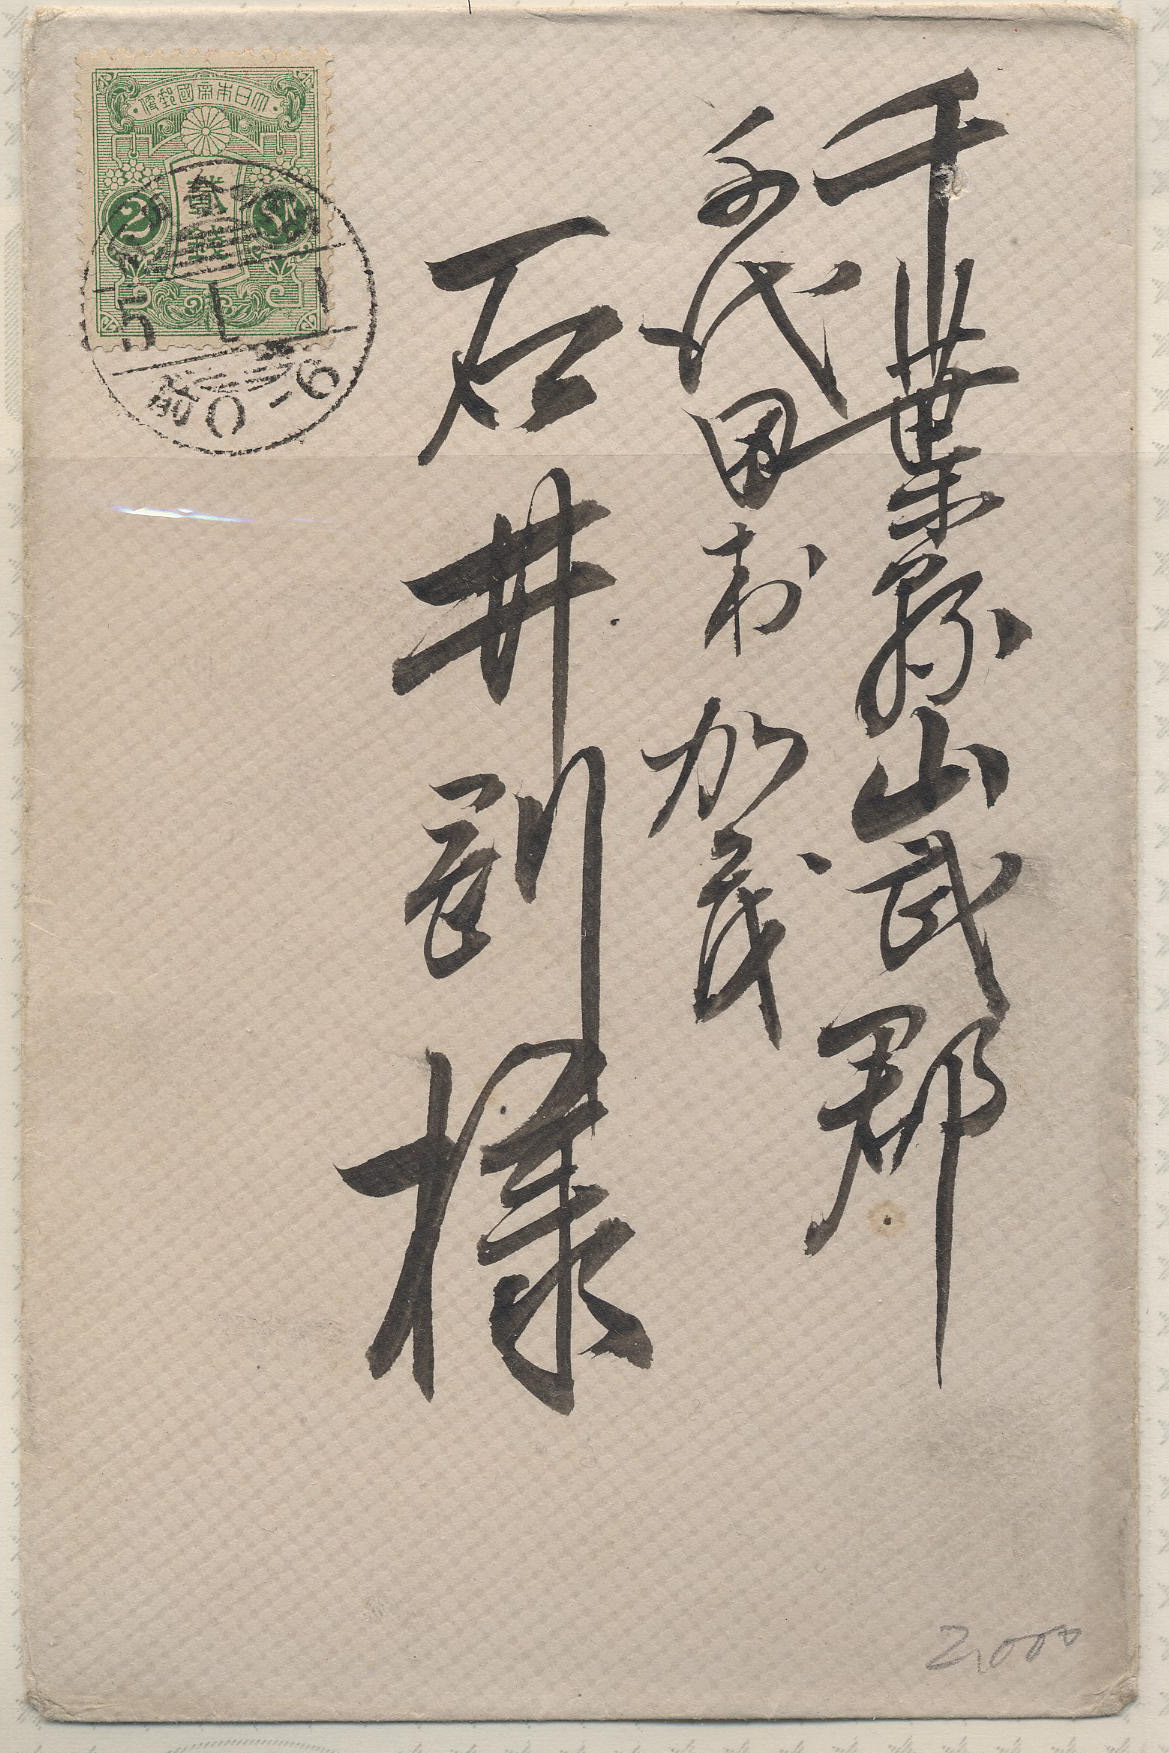 千葉縣山武郡
千代田村加茂
石井剛様
大日本帝國郵便
貳
錢
2
SN
5 1 1
前0-6
2,000